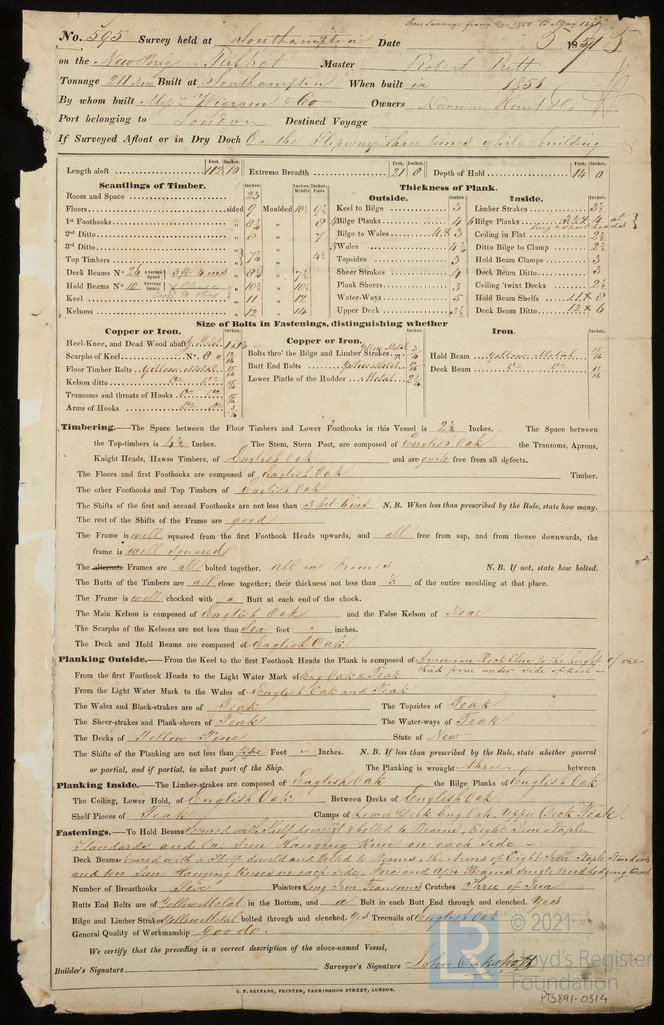 three surveys from 1850 to May 1851
No. 595 Survey held at Southampton Date 5/5 1851
on the New Brig Talbot Master Robert Pitt
Tonnage 211 Tons Built at Southampton When built in 1851
By whom built Mess Wigram & Co Owners Newman Hunt & Co
Port belonging to London Destined Voyage
If Surveyed Afloat or in Dry Dock On the Slipway three times while building
Feet. Inches. Feet. Inches. Feet. Inches.
Length aloft 112 10 Extreme Breadth 21 8 Depth of Hold 14 0
Scantlings of Timber.
Inches. Inches Middle Inches Ends
Room and Space 23
Floors sided 9 Moulded 10½ 9½
1st Foothooks 8¾ 8
2nd Ditto 8 7
3rd Ditto
Top Timbers 7¼ 4½
Deck Beams No 26 Average Space 3 ft 4 ins 8¼ 7½
Hold Beams No 10 Average Space 10½ 10½
Keel 11 12
Kelsons 12 14
Thickness of Plank.
Outside. Inches.
Keel to Bilge 3
Bilge Planks 4
Bilge to Wales 4 & 3
Wales 4½
Topsides 3
Sheer Strakes 4
Plank Sheers 3
Water-Ways 5
Upper Deck 3½
Inside. Inches.
Limber Strakes 3½
Bilge Planks 4 at
Ceiling in Flat 2½
Ditto Bilge to Clamp 2½
Hold Beam Clamps 3
Deck Beam Ditto 3
Ceiling 'twixt Decks 2½
Hold Beam Shelfs 11 × 8
Deck Beam Ditto 12 × 6
Size of Bolts in Fastenings, distinguishing whether
Copper or Iron.
Heel-Knee, and Dead Wood abaft Y. Metal
Scarphs of Keel No. 8
Floor Timber Bolts Yellow Metal
Kelson ditto Do Do
Transoms and throats of Hooks Do Do
Arms of Hooks Do Do
Copper or Iron.
Bolts thro' the Bilge and Limber Strakes Yellow Metal
Butt End Bolts Yellow Metal
Lower Pintle of the Rudder Metal
Iron.
Hold Beam Yellow Metal
Deck Beam Do Do
Timbering.—The Space between the Floor Timbers and Lower Foothooks in this Vessel is 2½ Inches. The Space between
the Top-timbers is 4½ Inches. The Stem, Stern Post, are composed of English Oak the Transoms, Aprons,
Knight Heads, Hawse Timbers, of English Oak and are quite free from all defects.
The Floors and first Foothooks are composed of English Oak Timber.
The other Foothooks and Top Timbers of English Oak
The Shifts of the first and second Foothooks are not less than 3 feet 6 ins N. B. When less than prescribed by the Rule, state how many.
The rest of the Shifts of the Frame are good
The Frame is well squared from the first Foothook Heads upwards, and all free from sap, and from thence downwards, the
frame is well squared
The alternate Frames are all bolted together. all in Frames N. B. If not, state how bolted.
The Butts of the Timbers are all close together; their thickness not less than ⅓ of the entire moulding at that place.
The Frame is well chocked with a Butt at each end of the chock.
The Main Kelson is composed of English Oak and the False Kelson of None
The Scarphs of the Kelsons are not less than Six feet " inches.
The Deck and Hold Beams are composed of English Oak
Planking Outside.—From the Keel to the first Foothook Heads the Plank is composed of American Rock Elm to the height of one
third from under side of keel
From the first Foothook Heads to the Light Water Mark of Eng Oak & Teak
From the Light Water Mark to the Wales of English Oak and Teak
The Wales and Black-strakes are of Teak The Topsides of Teak
The Sheer-strakes and Plank-sheers of Teak The Water-ways of Teak
The Decks of Yellow Pine State of New
The Shifts of the Planking are not less than five Feet " Inches. N. B. If less than prescribed by the Rule, state whether general
or partial, and if partial, in what part of the Ship. The Planking is wrought three between
Planking Inside.—The Limber-strakes are composed of English Oak the Bilge Planks of English Oak
The Ceiling, Lower Hold, of English Oak Between Decks of English Oak
Shelf Pieces of Teak Clamps of Lower Deck Eng Oak, Upper Deck Teak.
Fastenings.—To Hold Beams Secured with Shelf dowel'd & bolted to Beams, Eight Iron Staple
Standards and Six Iron Hanging Knees on each side
Deck Beams Secured with a Shelf doweld and bolted to Beams, the Arms of Eight Iron Staple Standards
and ten Iron Hanging Knees on each side,
Number of Breasthooks Six Pointers Long Iron Transoms Crutches Three of Iron
Butts End Bolts are of Yellow Metal in the Bottom, and a Bolt in each Butt End through and clenched. Yes
Bilge and Limber Strakes Yellow Metal bolted through and clenched. Yes Treenails of English Oak
General Quality of Workmanship good.
We certify that the preceding is a correct description of the above-named Vessel,
Builder's Signature Surveyor's Signature John Oakshott
C. F. SEYFANG, PRINTER, FARRINGDON STREET, LONDON.
© 2021
LR
Lloyd's Register
Foundation
PTS891-0314